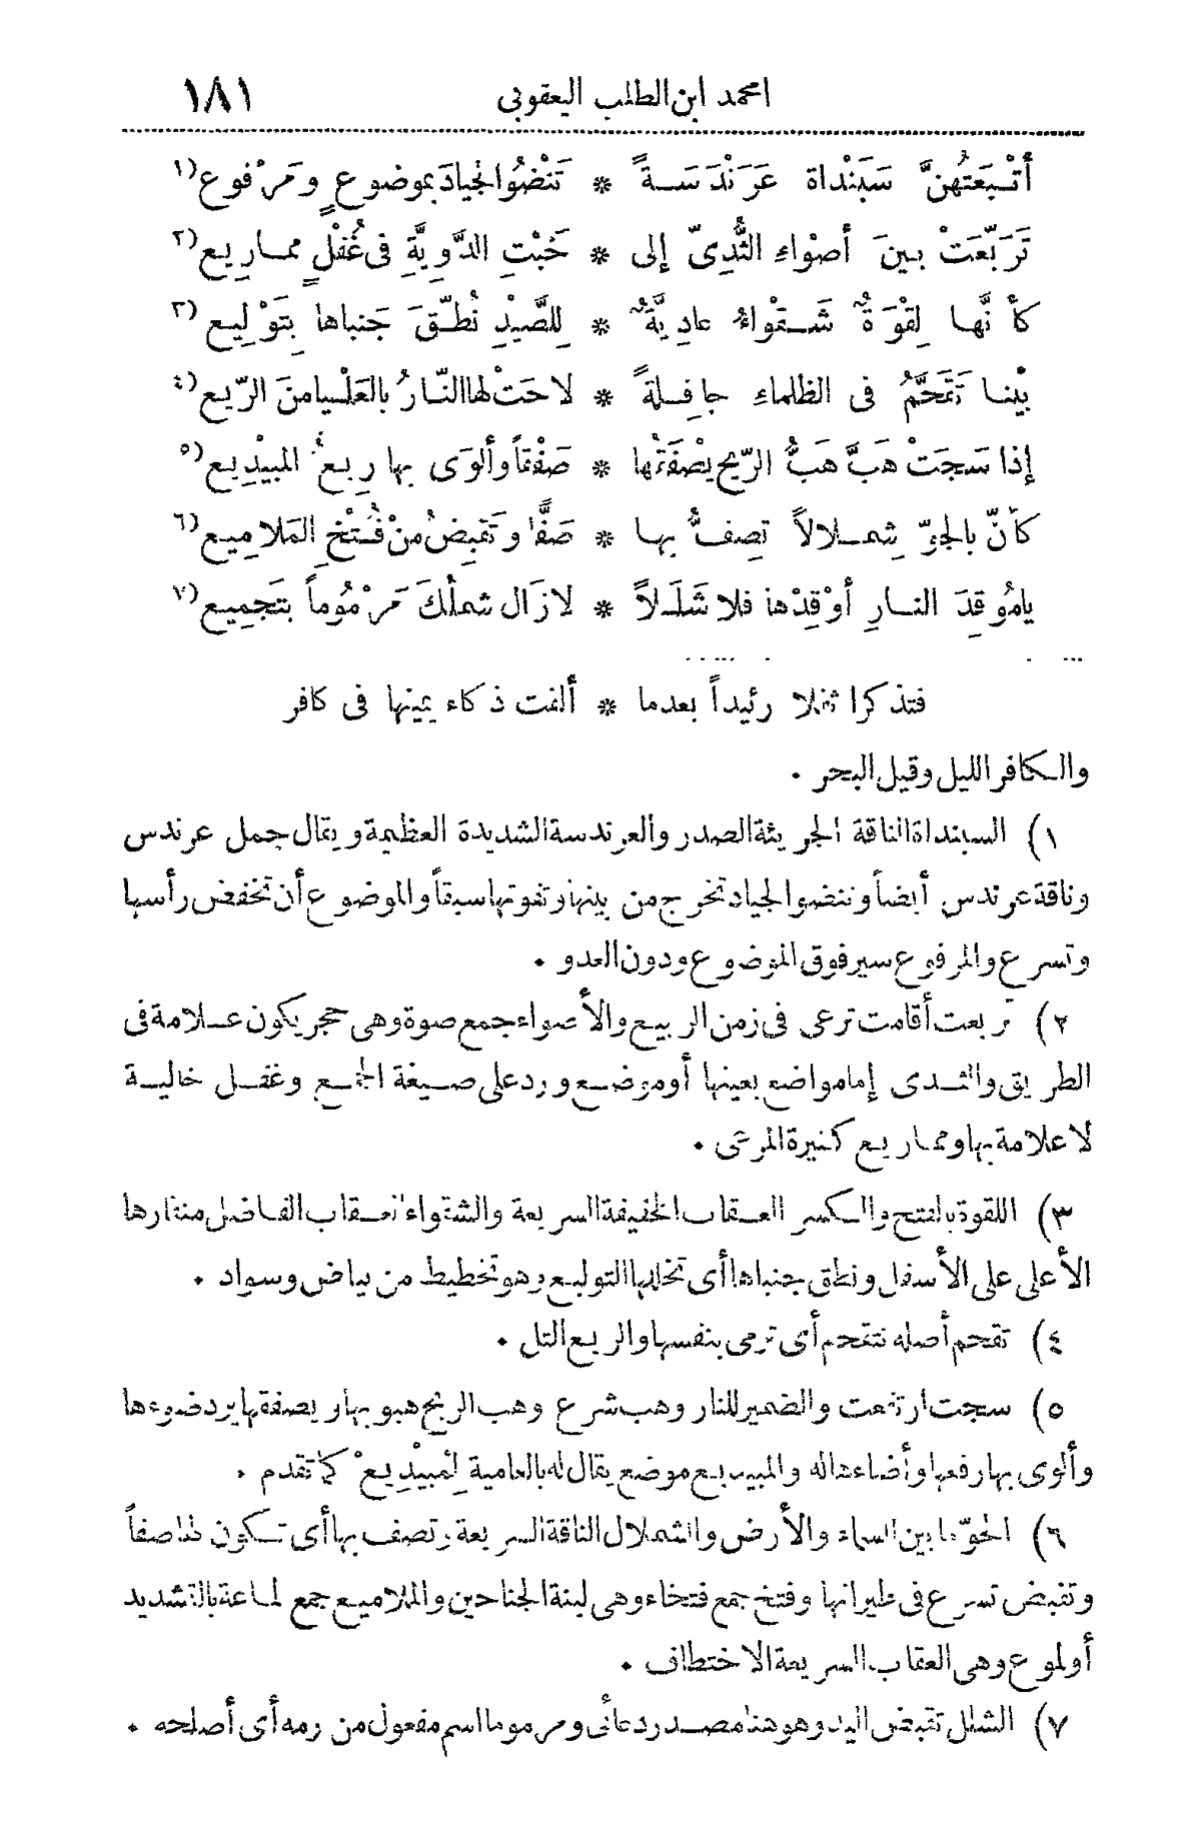 امحمد ابن الطلب اليعقوبى ١٨١
أتْبَعَتْهُنَّ سَبَنْداة عَرَنْدَسَةً * تَنْضُوا الجيادَ بموضوعٍ ومَرْفوع (١
تَرَبّعَتْ بينَ أصْواءِ الثُّدِىّ إلى * خَبْتِ الدَّوِيَّةِ فى غُفْلٍ مماريع (٢
كأنَّها لِقْوَةٌ شَقْواءُ عادِيَّةٌ * لِلصَّيْدِ نُطّقَ جَنباها بِتَوْلِيع (٣
بيْنا تَقَحَّمُ فى الظلماءِ جافِلةً * لاحَتْ لها النّارُ بالعَلْيا منَ الرّيع (٤
إذا سَجَتْ هَبَّ هَبُّ الرّيح يصْفَقُها * صَفْقاً وألوَى بها رِيعُ المبيْدِيع (٥
كأنّ بالجوّ شِملالاً تصِفُّ بها * صَفًّا وتَقبِضُ منْ فُتْخِ المَلامِيع (٦
يامُوقِدَ النارِ أوْقِدْها فلا شَلَلاً * لازَال شملُكَ مَرْمُوماً بتَجمِيع (٧
فتذكرا ثقلا رثيداً بعدما * ألقت ذكاء يمينها فى كافر
والكافر الليل وقيل البحر .
١) السبنداة الناقة الجريئة الصدر والعرندسة الشديدة العظيمة ويقال جمل عرندس
وناقة عرندس أيضاً وتنضوا الجياد تخرج من بينها وتفوتها سبقاً والموضوع أن تخفض رأسها
وتسرع والمرفوع سير فوق الموضوع ودون العدو .
٢) تربعت أقامت ترعى فى زمن الربيع والأصواء جمع صوة وهى حجر يكون علامة فى
الطريق والثدى إما مواضع بعينها أو موضع ورد على صيغة الجمع وغفل خالية
لا علامة بها ومماريع كثيرة المرعى .
٣) اللقوة بالفتح والكسر العقاب الخفيفة السريعة والشقواء العقاب الفاضل منقارها
الأعلى على الأسفل ونطق جنباها أى تخللها التوليع وهو تخطيط من بياض وسواد .
٤) تقحم أصله تتقحم أى ترمى بنفسها والريع التل .
٥) سجت ارتفعت والضمير للنار وهب شرع وهب الريح هبوبها ويصفقها يرد ضوءها
وألوى بها رفعها وأضاءت له والمبيديع موضع يقال له بالعامية لِمْبيْدِيعْ كما تقدم .
٦) الجوّ ما بين السماء والأرض والشملال الناقة السريعة وتصف بها أى تكون لها صفاً
وتقبض تسرع فى طيرانها وفتخ جمع فتخاء وهى لينة الجناحين والملاميع جمع لماعة بالتشديد
أو لموع وهى العقاب السريعة الاختطاف .
٧) الشلل تقبض اليد وهو هنا مصدر دعائى ومرموما اسم مفعول من رمه أى أصلحه .